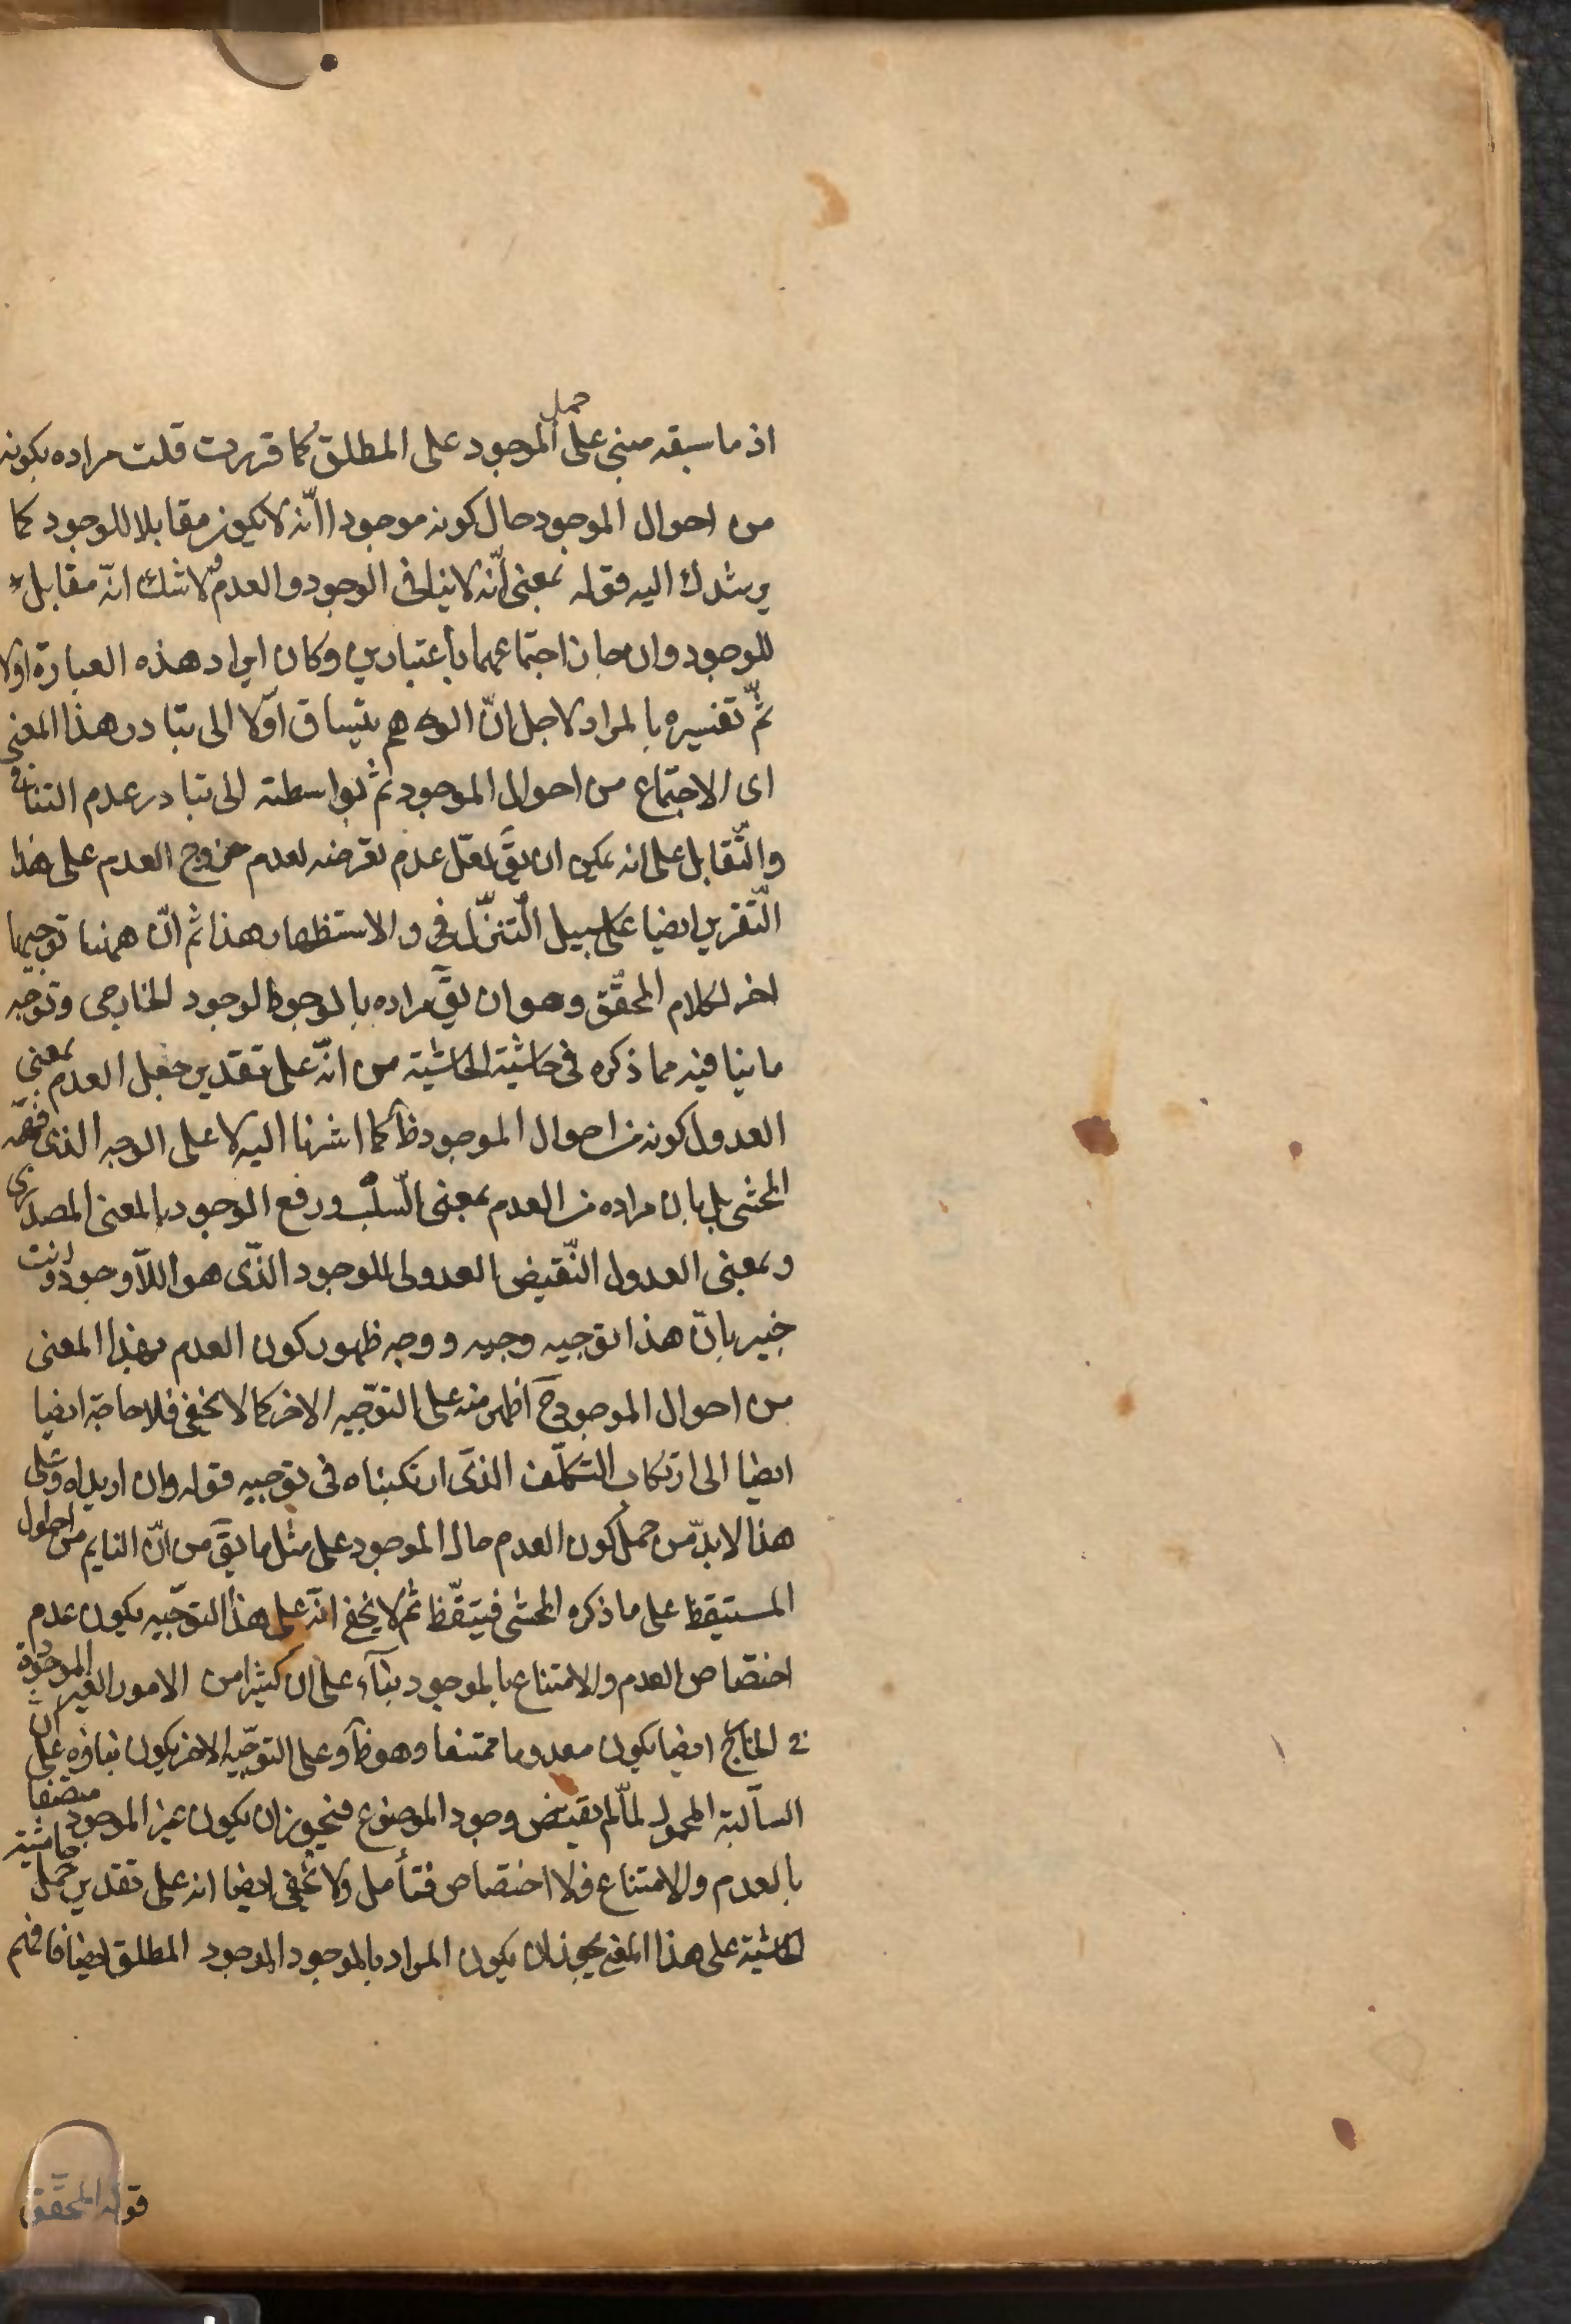 اذ ما سبقه مبنى على حمل الموجود على المطلق كما قررت قلت مراده بكونه
من احوال الموجود حال كونه موجودا انّه لا يكون مقابلا للوجود كما
يرشدك اليه قوله بمعنى انّه لا ينافى الوجود و العدم لا شك انّه مقابل
للوجود وان جاز اجتماعهما باعتبارين وكان ايراد هذه العبارة اولا
ثمّ تفسيره بالمراد لاجل انّ الوهم ينساق اوّلا الى تبادر هذا المعنى
اى الاجتماع من احوال الموجود ثم بواسطته الى تبادر عدم التنافى
والتّقابل على انه يمكن ان يقَ لعّل عدم تعرضه لعدم خروج العدم على هذا
التّقرير ايضا على سبيل التنزّل فى و الاستظهار هذا ثم انّ ههنا توجيها
اخر لكلام المحقّق وهو ان يقَ مراده بالوجود الوجود الخارجى وتوجّه
ما ينافيه مما ذكره فى حاشية الحاشية من انّه على تقدير جعل العدم بمعنى
العدول كونه من احوال الموجود ظَ كما اشرنا اليه لا على الوجه الذى فهمه
المحشى بل بان مراده من العدم بمعنى السّلب و رفع الوجود بالمعنى المصدرى
و بمعنى العدول النّقيض العدولى للوجود الذّى هو اللّاوجود وانت
خبير بانّ هذا توجيه وجيه و وجه ظهور كون العدم بهذا المعنى
من احوال الموجود حَ اظهر منه على التوّجيه الاخر كما لا يخفى فلا حاجة ايضا
ايضا الى ارتكاب التكلّف الذّى ارتكبناه فى توجيه قوله وان اريد اه وعلى
هذا لا بدّ من حمل كون العدم حال الموجود على مثل ما يقَ من انّ النايم من احوال
المستيقظ على ما ذكره المحشى فيتيقّظ ثم لا يخفى انّه على هذا التوّجيه يكون عدم
اختصاص العدم والامتناع بالموجود بناء على ان كثيرا من الامور الغير الموجودة
فى الخارج ايضا يكون معدوما ممتنعا وهو ظَ وعلى التوّجيه الاخر يكون بناؤه على ان
السّالبة المحمول لمّا لم يقتض وجود الموضوع فيجوز ان يكون غير الموجود متصفا
بالعدم والامتناع فلا اختصاص فتأمل ولا يخفى ايضا انه على تقدير حمل حاشية
الحاشية على هذا المعنى يجوز ان يكون المراد بالموجود الموجود المطلق ايضا فافهم
قوله المحقّق